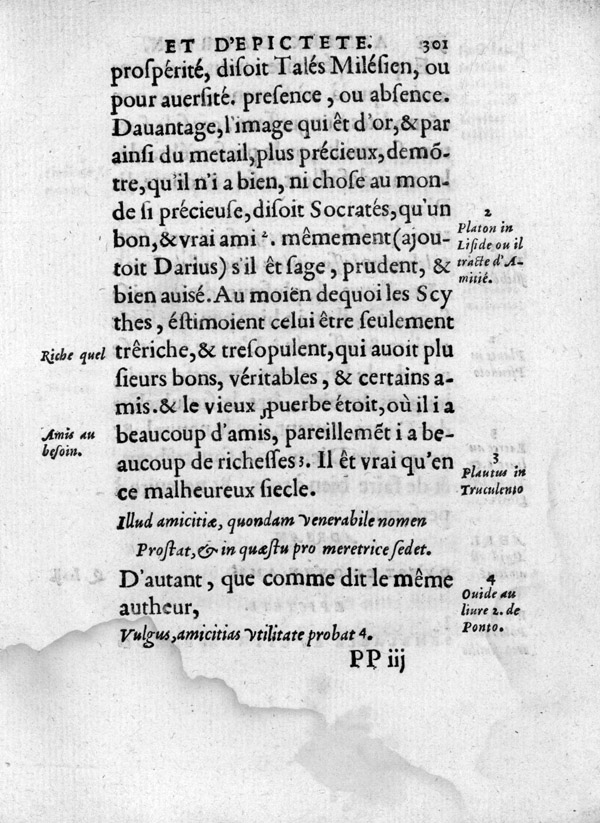 ET D'EPICTETE. 301
prosperité, disoit Talés Milésien, ou
pour auersité. presence, ou absence.
Dauantage, l'image qui êt d'or, & par
ainsi du metail, plus précieux, demõ-
tre, qu'il n'i a bien, ni chose au mon-
de si précieuse, disoit Socratés, qu'un
bon, & vrai ami ². mêmement (ajou-
toit Darius) s'il êt sage, prudent, &
bien auisé. Au moiën dequoi les Scy
thes, éstimoient celui être seulement
trêriche, & tresopulent, qui auoit plu
sieurs bons, véritables, & certains a-
mis. & le vieux ꝓuerbe étoit, où il i a
beaucoup d'amis, pareillemẽt i a be-
aucoup de richesses 3. Il êt vrai qu'en
ce malheureux siecle.
Illud amicitiæ, quondam venerabile nomen
Prostat, & in quæstu pro meretrice sedet.
D'autant, que comme dit le même
autheur,
Vulgus, amicitias vtilitate probat 4.
PP iij
2
Platon in
Liside ou il
tracte d'A-
mitié.
Riche quel
Amis au
besoin.
3
Plautus in
Truculento
4
Ouide au
liure 2. de
Ponto.